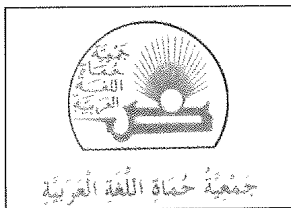 جَمْعِيَّة
حُمَاة
اللغَـة
العَرَبيَّة
جَمْعِيَّةُ حُمَاةِ اللُّغَةِ الْعَرَبِيَّةِ